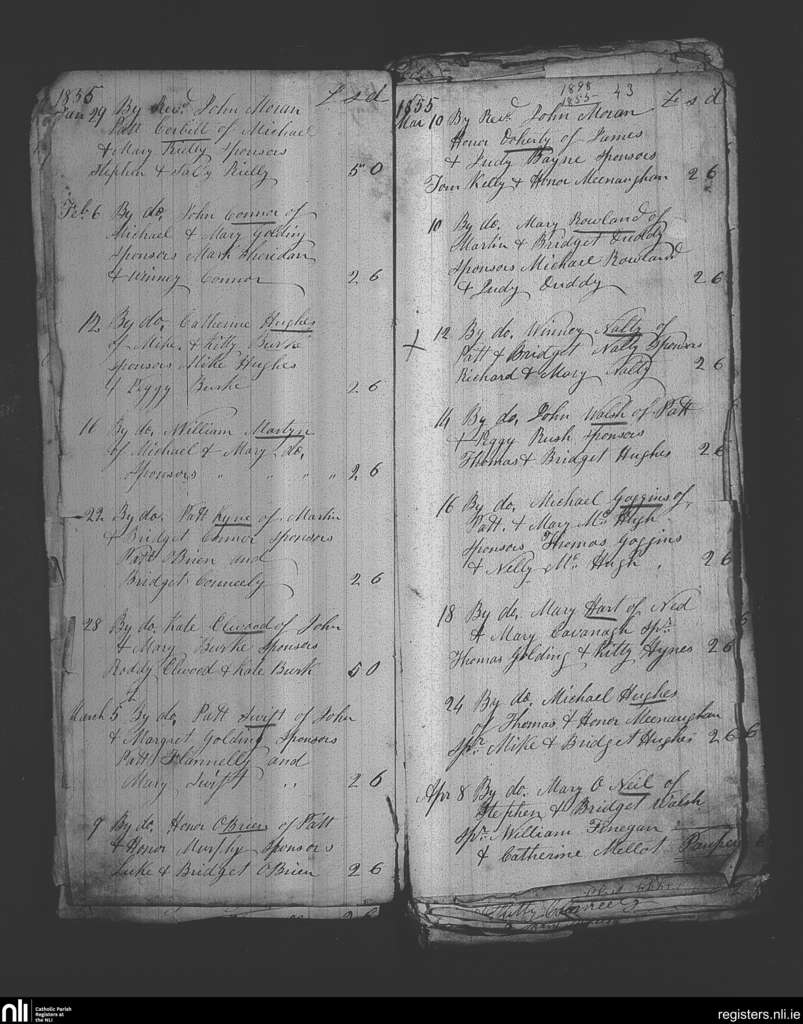 1855 £ s d
Jan 29 By Revd. John Moran
Patt Corbitt of Michael
& Mary Reilly Sponsors
Stephen & Reilly 5 0
Feb. 6 By do. John Connor of
Michael & Mary Golding
Sponsors Mark Sheridan
& Winney Connor 2 6
12 By do. Catherine Hughes
of Mike. & Kitty Burke
Sponsors Mike Hughes
& Peggy Burke 2 6
16 By do. William Martyn
of Michael & Mary do.
Sponsors " " " " 2 6
22 By do. Patt Lyne of Martin
& Bridget Connor Sponsors
Patt O'Brien and
Bridget Conneely 2 6
28 By do. Kate Elwood of John
& Mary Burke Sponsors
Roddy Elwood & Kate Burk 5 0
March 5 By do. Patt Swift of John
& Margret Golding Sponsors
Patt Flannelly and
Mary Swift " 2 6
9 By do. Honor O'Brien of Patt
& Honor Murphy Sponsors
Luke & Bridget O'Brien 2 6
1898
1855 43
1855 £ s d
Mar 10 By Revd. John Moran
Honor Doherty of James
& Judy Bayne Sponsors
Tom Kelly & Honor Meenaughan 2 6
10 By do. Mary Rowland of
Martin & Bridget Duddy
Sponsors Michael Rowland
& Judy Duddy 2 6
12 By do. Winney Nally of
Patt & Bridget Nally Sponsors
Richard & Mary Nally 2 6
14 By do. John Walsh of Patt
& Peggy Rush Sponsors
Thomas & Bridget Hughes 2 6
16 By do. Michael Goggins of
Patt. & Mary Mc. Hugh
Sponsors Thomas Goggins
& Nelly Mc. Hugh 2 6
18 By do. Mary Hart of Ned
& Mary Cavanagh Spr.
Thomas Golding & Kitty Hynes 2 6
24 By do. Michael Hughes
of Thomas & Honor Meenaughan
Spr. Mike & Bridget Hughes 2 6
Apr 8 By do. Mary O Neil of
Stephen & Bridget Walsh
Spr. William Finegan
& Catherine Mellot Pauper
nli Catholic Parish
Registers at
the NLI
registers.nli.ie